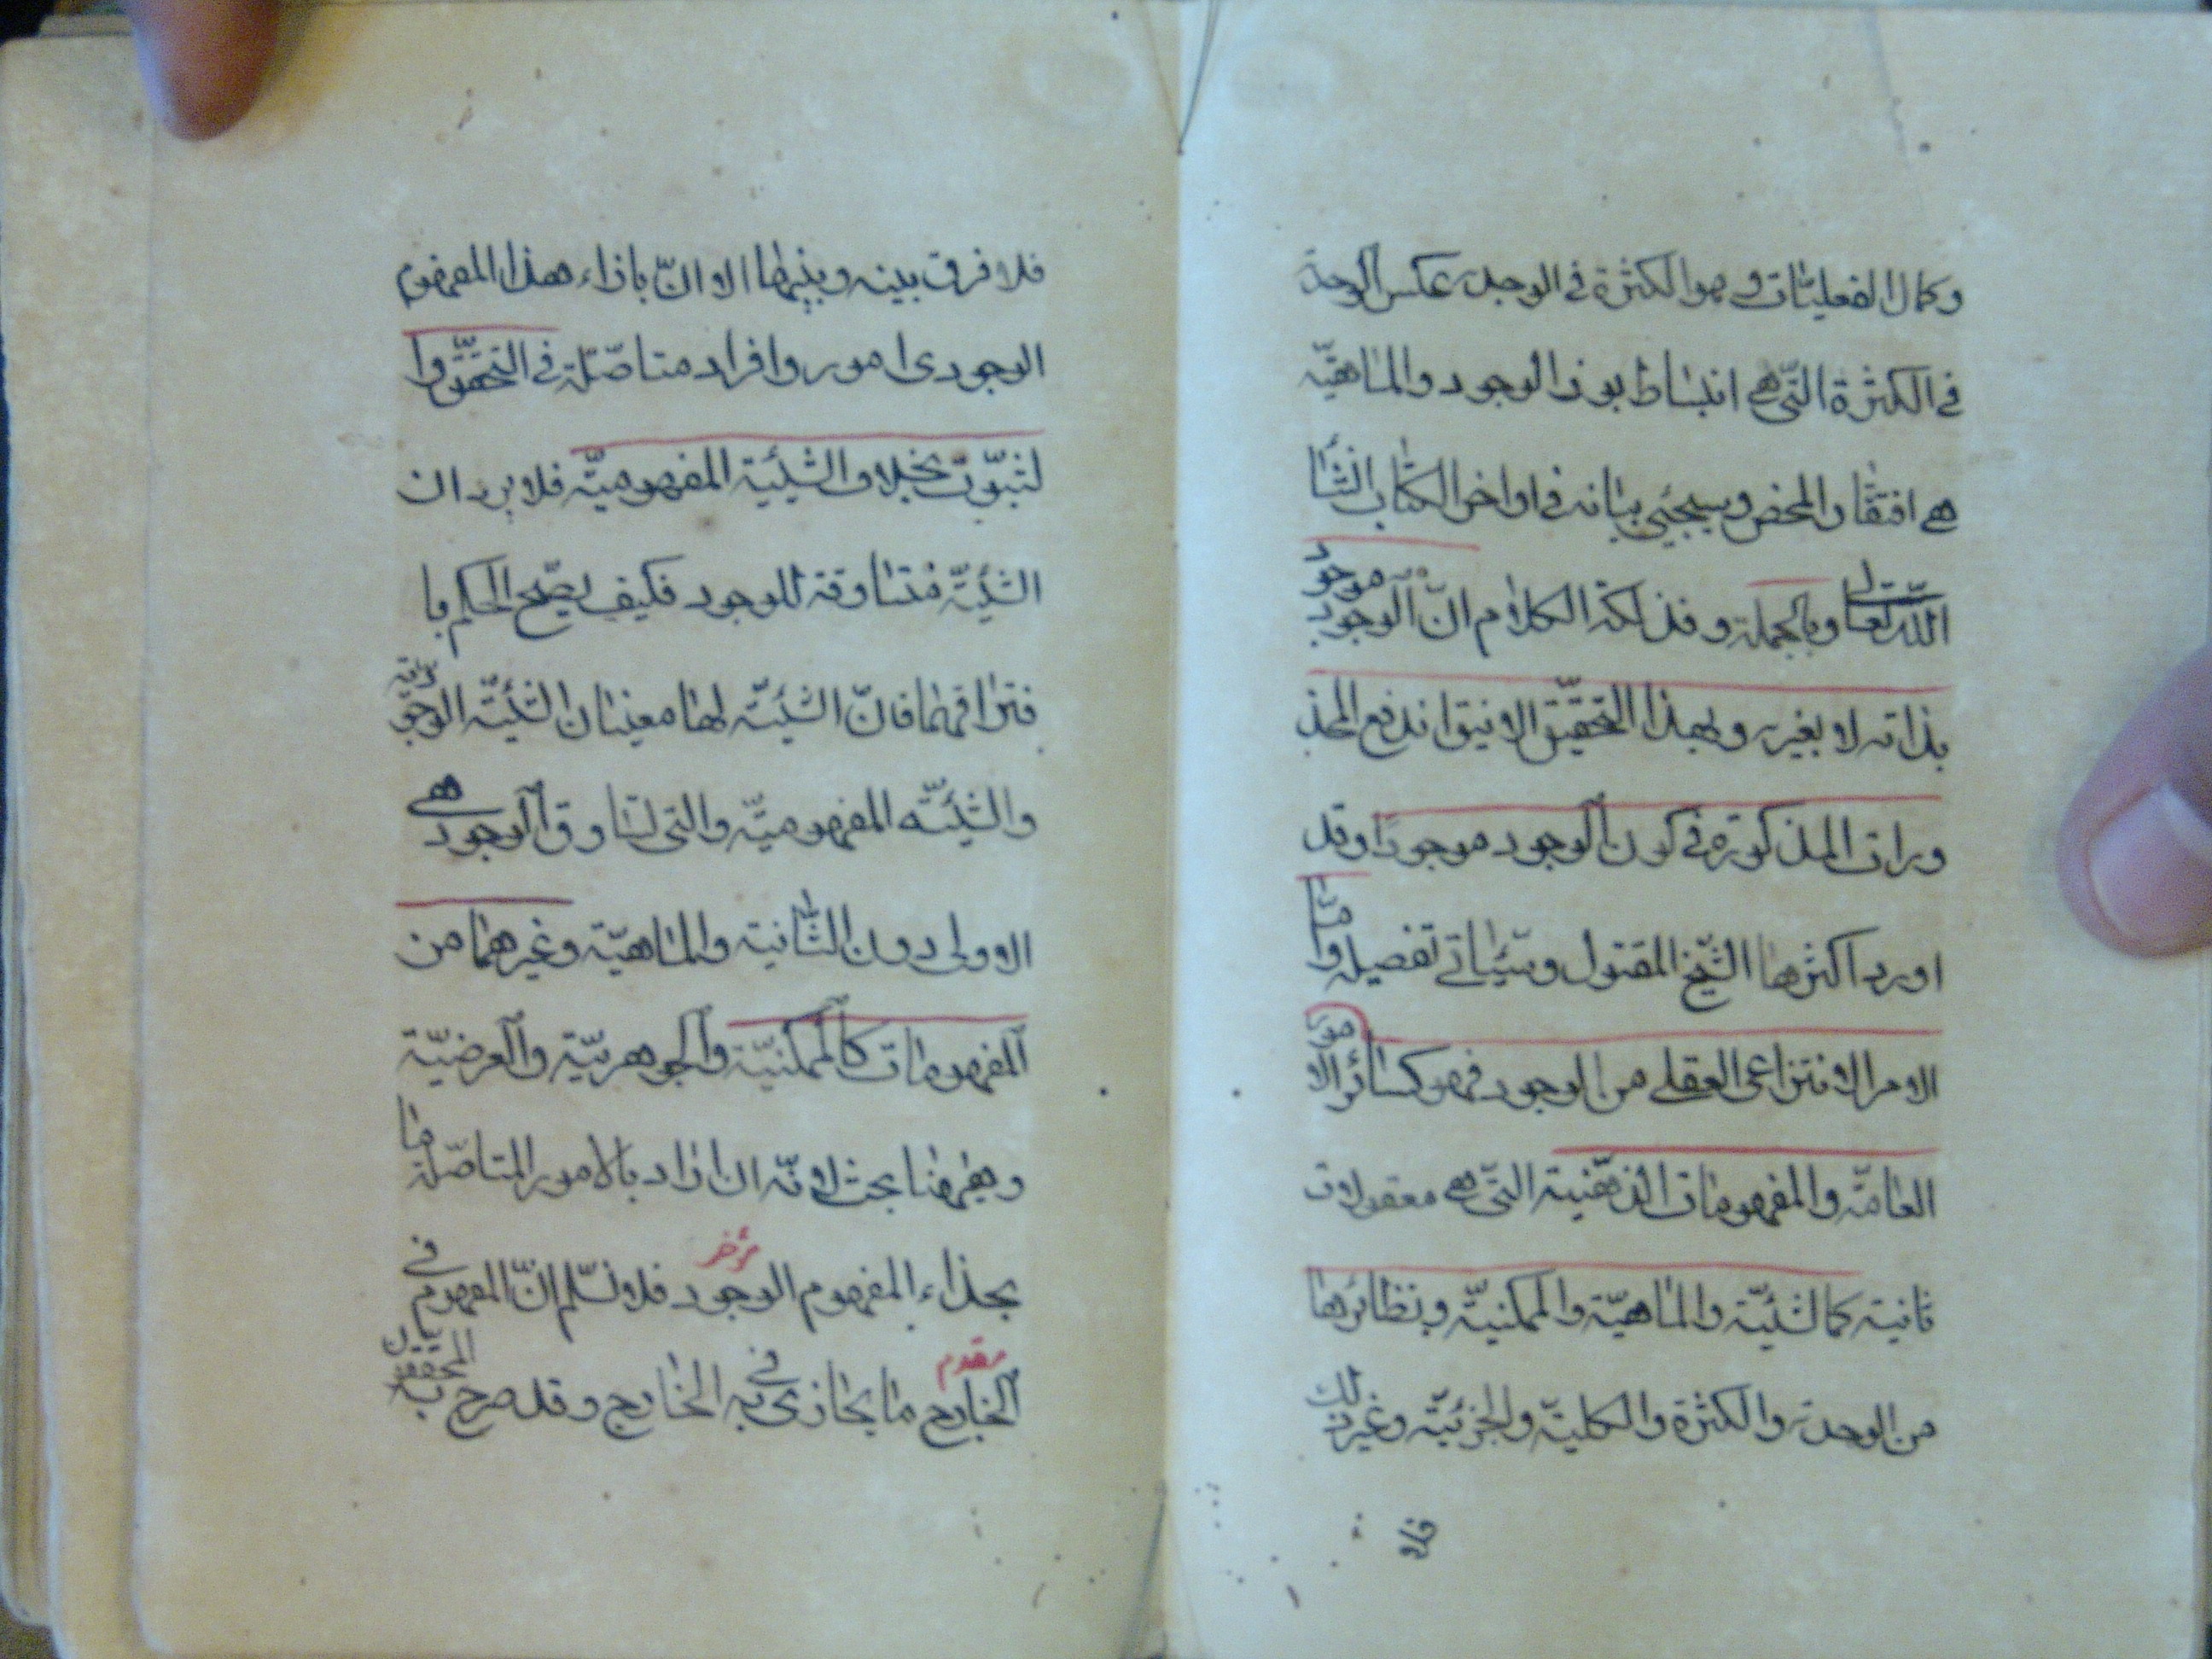 وكمال الفعليات و هو الكثرة في الوحدة عكس الوحدة
في الكثرة التي هي انبساط نور الوجود والماهيّة
هي افتقار المحض وسيجيئ بيانه في اواخر الكتاب انشأ
اللّه تعالى وبالجملة وفذلكة الكلام انّ الوجود موجود
بذاته لا بغيره وبهذا التحقيق الانيق اندفع المحذ
ورات المذكورة في كون الوجود موجودًا وقد
اورد اكثرها الشّيخ المقتول وسيأتي تفصيله وامّا
الامر الانتزاعى العقلي من الوجود فهو كسائر الامور
العامّة والمفهومات الذهنية التّى هي معقولات
ثانية كالشيئيّة والماهيّة والممكنيّة ونظائرها
من الوحدة والكثرة والكليّة والجزئيّة وغير ذلك
فلا
فلا فرق بينه وبينها الا انّ بازاء هذا المفهوم
الوجودى امور وافراد متاصّلة في التحقّق وا
لثبوت بخلاف الشيئية المفهوميّة فلا يرد ان
الشيئيّة متساوقة للوجود فكيف يصّح الحكم با
فتراقهما فانّ الشيئيّة لها معينان الشيئيّة الوجوديّة
والشيئيّة المفهوميّة والتى تساوق الوجود هي
الاولى دون الثّانية والماهيّة وغيرهما من
المفهومات كالممكنيّة والجوهريّة والعرضيّة
وههنا بحث لانّه ان اراد بالامور المتاصّلة ما
بحذاء المفهوم الوجود فلا نسّلم انّ المفهوم في
مؤخر
الخارج ما يحاذى به في الخارج وقد صرح به المحققون
مقدم